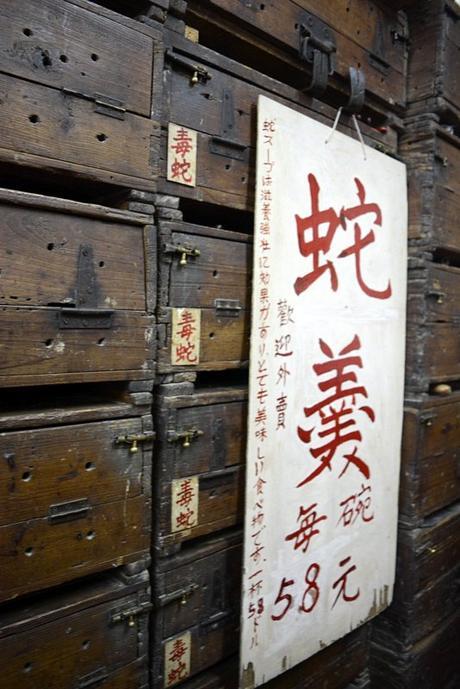 毒蛇
毒蛇
毒蛇
毒蛇
蛇羹
每碗
58元
歡迎外賣
蛇スープは滋養強壮に効果があり、とても美味しい食べ物です、一杯58ドル